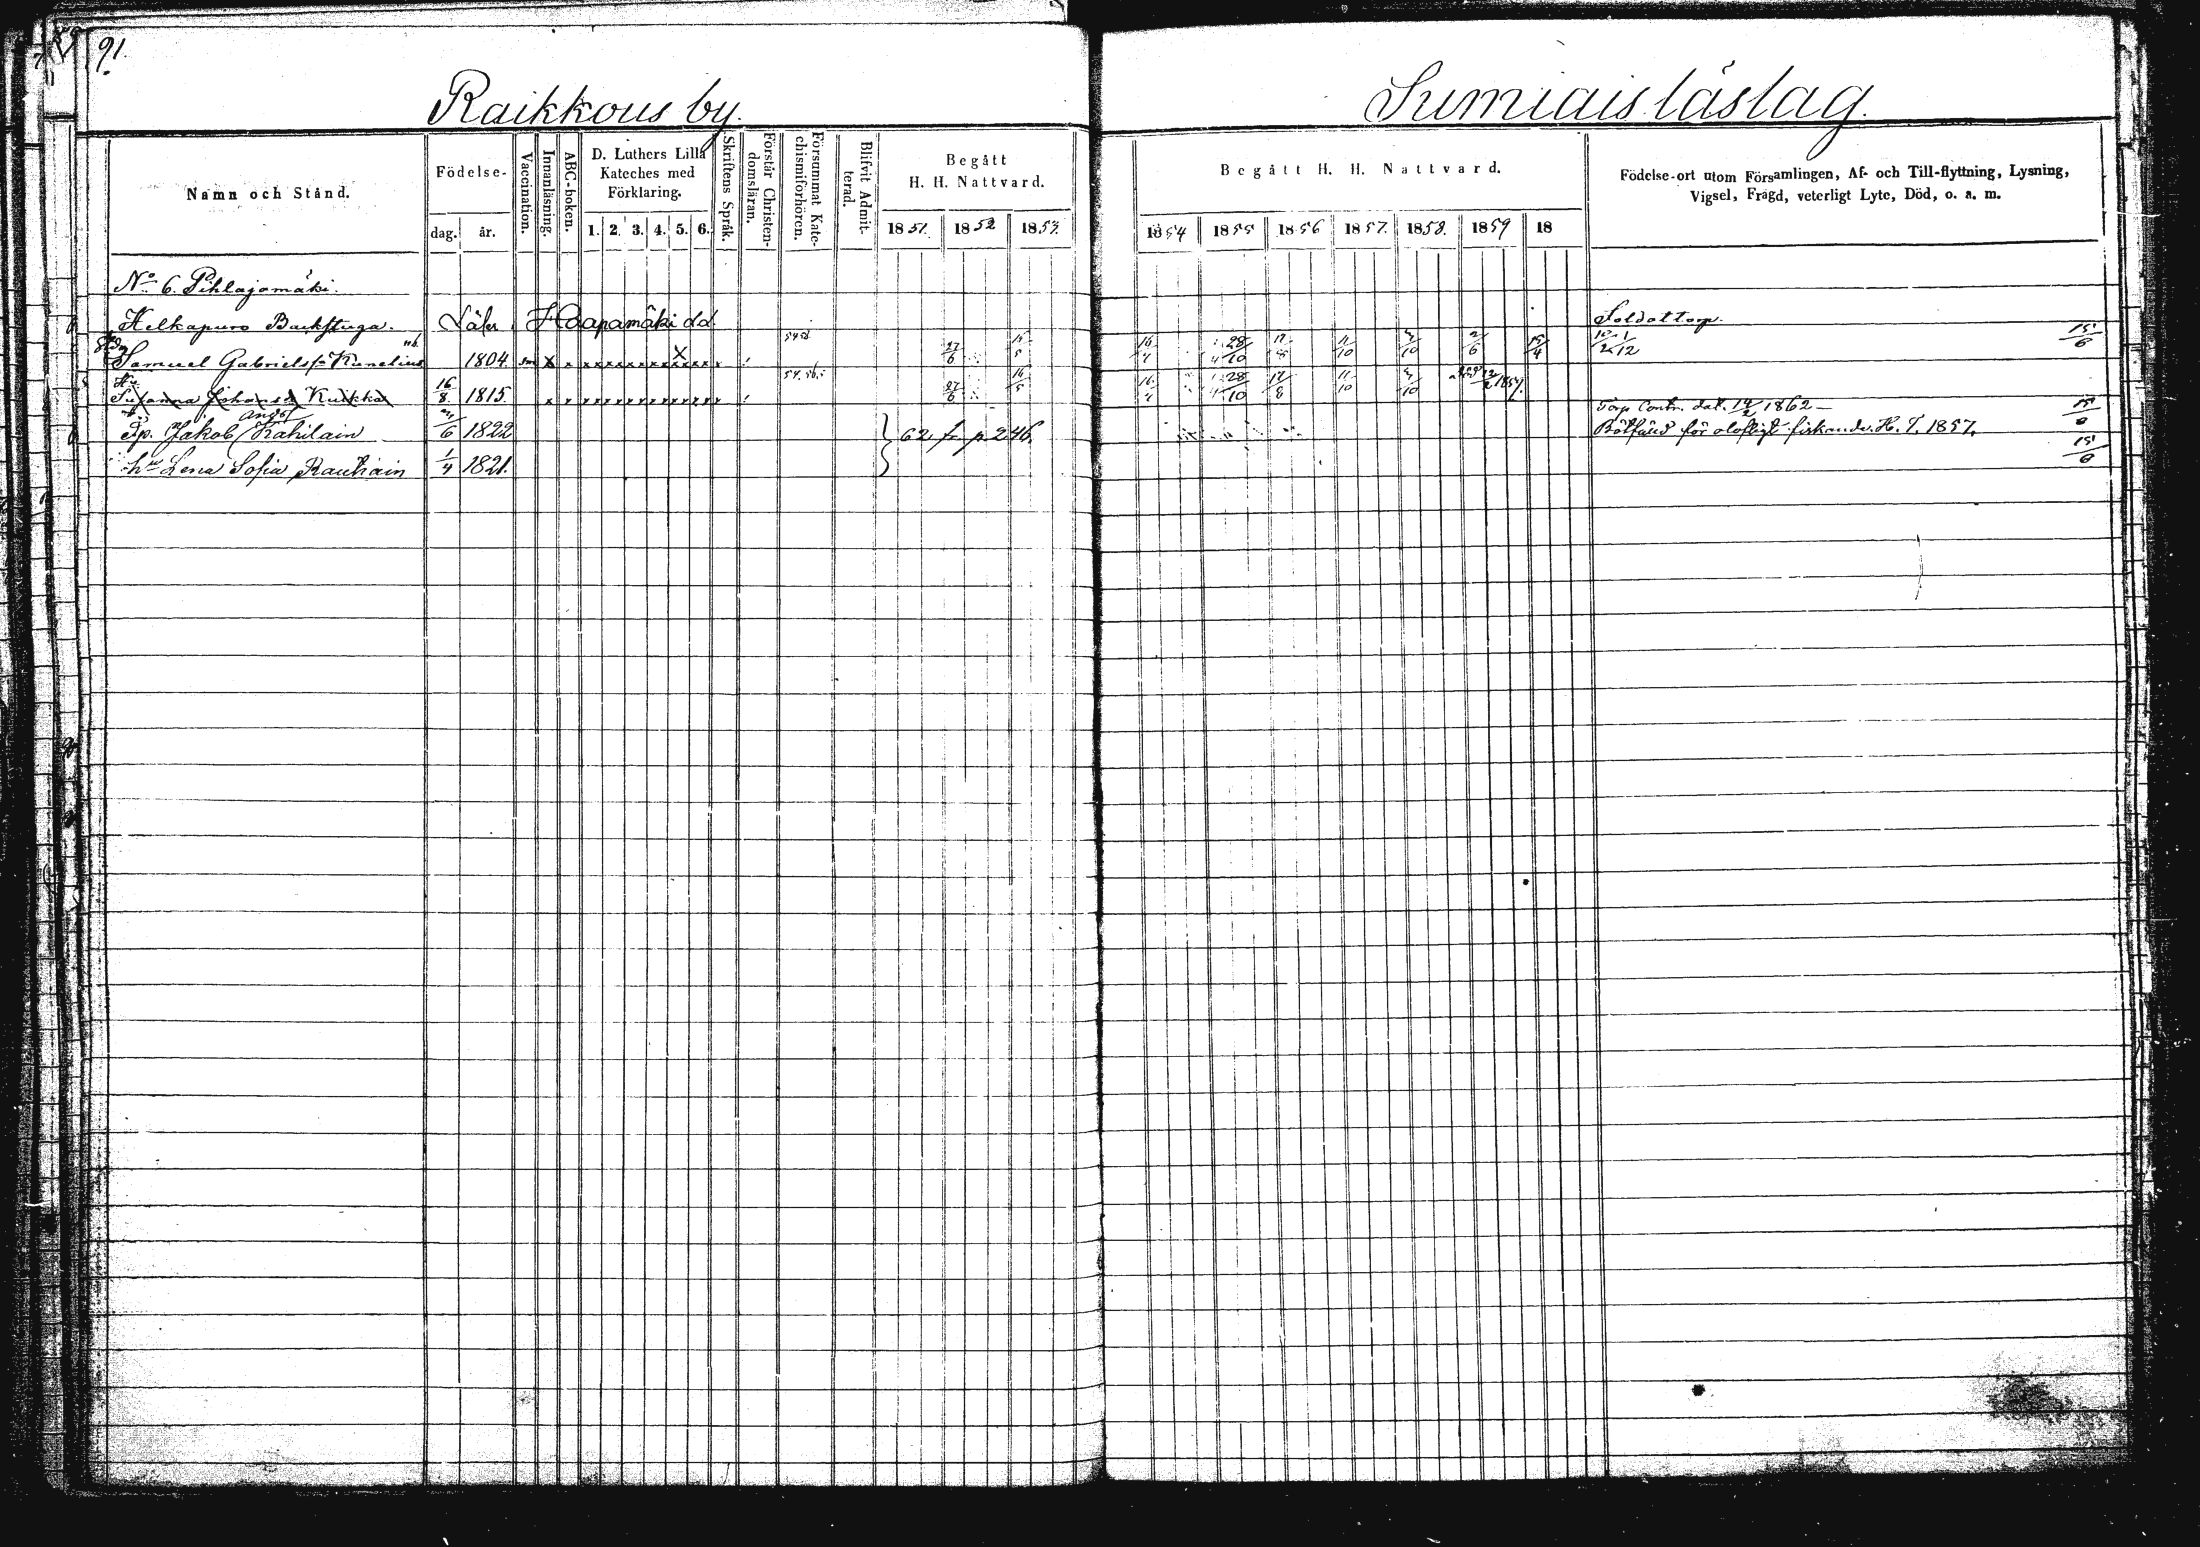 91.
Raikkous by.
Sumiais läslag.
Namn och Stånd.
Födelse-
dag. år.
Vaccination.
Innanläsning.
ABC-boken.
D. Luthers Lilla
Kateches med
Förklaring.
1. 2. 3. 4. 5. 6.
Skriftens Språk.
Förstår Christen-
domsläran.
Försummat Kate-
chismiförhören.
Blifvit Admit-
terad.
Begått
H. H. Nattvard.
1851. 1852 1853.
Begått H. H. Nattvard.
1854 1855 1856 1857. 1858. 1859 18
Födelse-ort utom Församlingen, Af- och Till-flyttning, Lysning,
Vigsel, Frägd, veterligt Lyte, Död, o. a. m.
No 6. Pihlajamäki.
Kelkapuro Backstuga. Läser Haapamäki dd. Soldattorp.
Samuel Gabrielss. Kunelius 1804. 27/6 15/5 16/4 28/10 12/8 11/10 3/10 2/6 15/4 1/12 15/6
Hu Susanna Johansd Kukka 16/8 1815. 54. 56. 27/6 16/5 16/4 28/10 12/8 11/10 3/10 12/2 1859.
Tp. Jakob Andsf Kahilain 6 1822 } 62 fr. p. 246. Torp Contr. dat. 14/2 1862 —
Bötfäld för olofligt fiskande. H. T. 1857.
hu Lena Sofia Rautiain 1/4 1821. 15/6